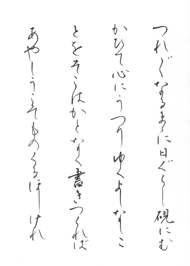 つれ〴〵なるまゝに日ぐらし硯にむ
かひて心にうつりゆくよしなしこ
とをそこはかとなく書きつくれば
あやしうこそものくるほしけれ